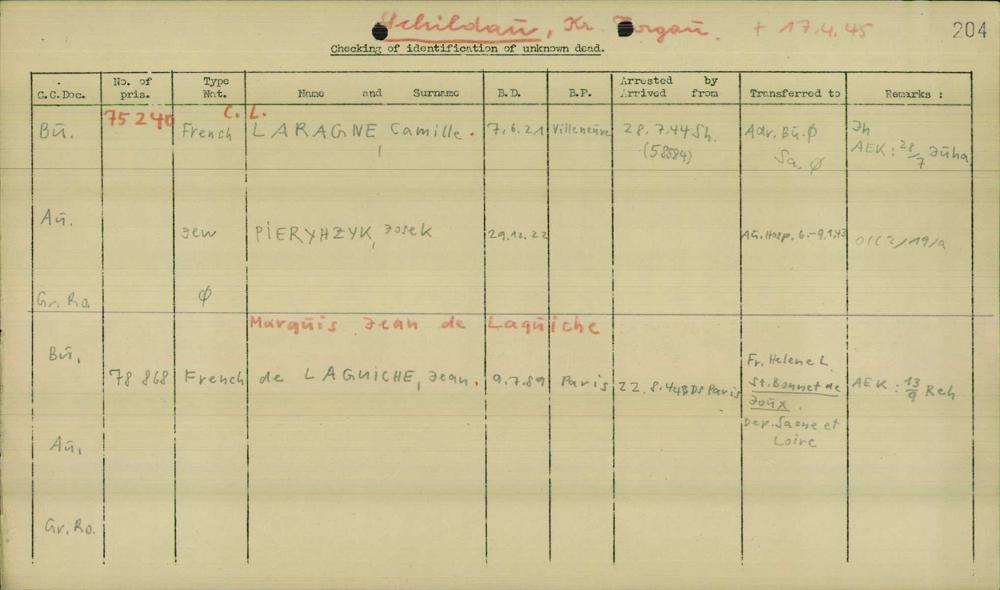 Schildaū, Kr. Torgaū. + 17.4.45
204
Checking of identification of unknown dead.
C.C.Doc. No. of pris. Type Nat. Name and Surname B.D. B.P. Arrested by Arrived from Transferred to Remarks :
Bū. 75240 French C. L. LARAGNE Camille. 7.6.21 Villeneuve 28.7.44 Sh. (58584) Adr. Bū. Ø Sa. Ø Jh AEK: 28/7 Jūha
Aū. Jew PIERYHZYK, Josek 29.12.22 AG. Hosp. 6.-9.1.43
Gr. Ro. Ø
Marqūis Jean de Lagūiche
Bū. 78 868 French de LAGUICHE, Jean. 9.7.89 Paris 22.8.44 BDS Paris Fr. Helene L. AEK: 13/9 Reh
St. Bonnet de
Joūx.
Dep. Saone et
Loire
Aū.
Gr. Ro.